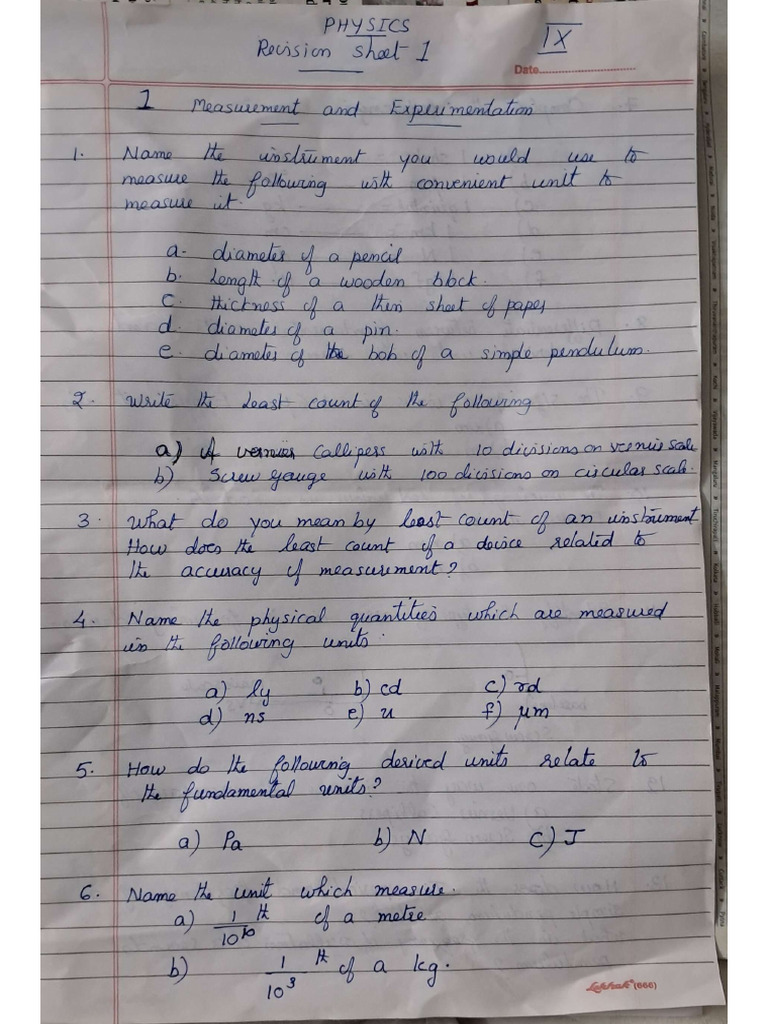 PHYSICS
Revision sheet 1
IX
Date
1 Measurement and Experimentation
1. Name the instrument you would use to
measure the following with convenient unit to
measure it.
a. diameter of a pencil
b. Length of a wooden block.
c. thickness of a thin sheet of paper
d. diameter of a pin.
e. diameter of the bob of a simple pendulum.
2. Write the least count of the following
a) A vernier callipers with 10 divisions on vernier scale
b) Screw gauge with 100 divisions on circular scale.
3. What do you mean by least count of an instrument
How does the least count of a device related to
the accuracy of measurement?
4. Name the physical quantities which are measured
in the following units.
a) ly b) cd c) rd
d) ns e) u f) μm
5. How do the following derived units relate to
the fundamental units?
a) Pa b) N c) J
6. Name the unit which measure.
a) 1/10^10 th of a metre
b) 1/10^3 th of a kg.
Lekhak (666)